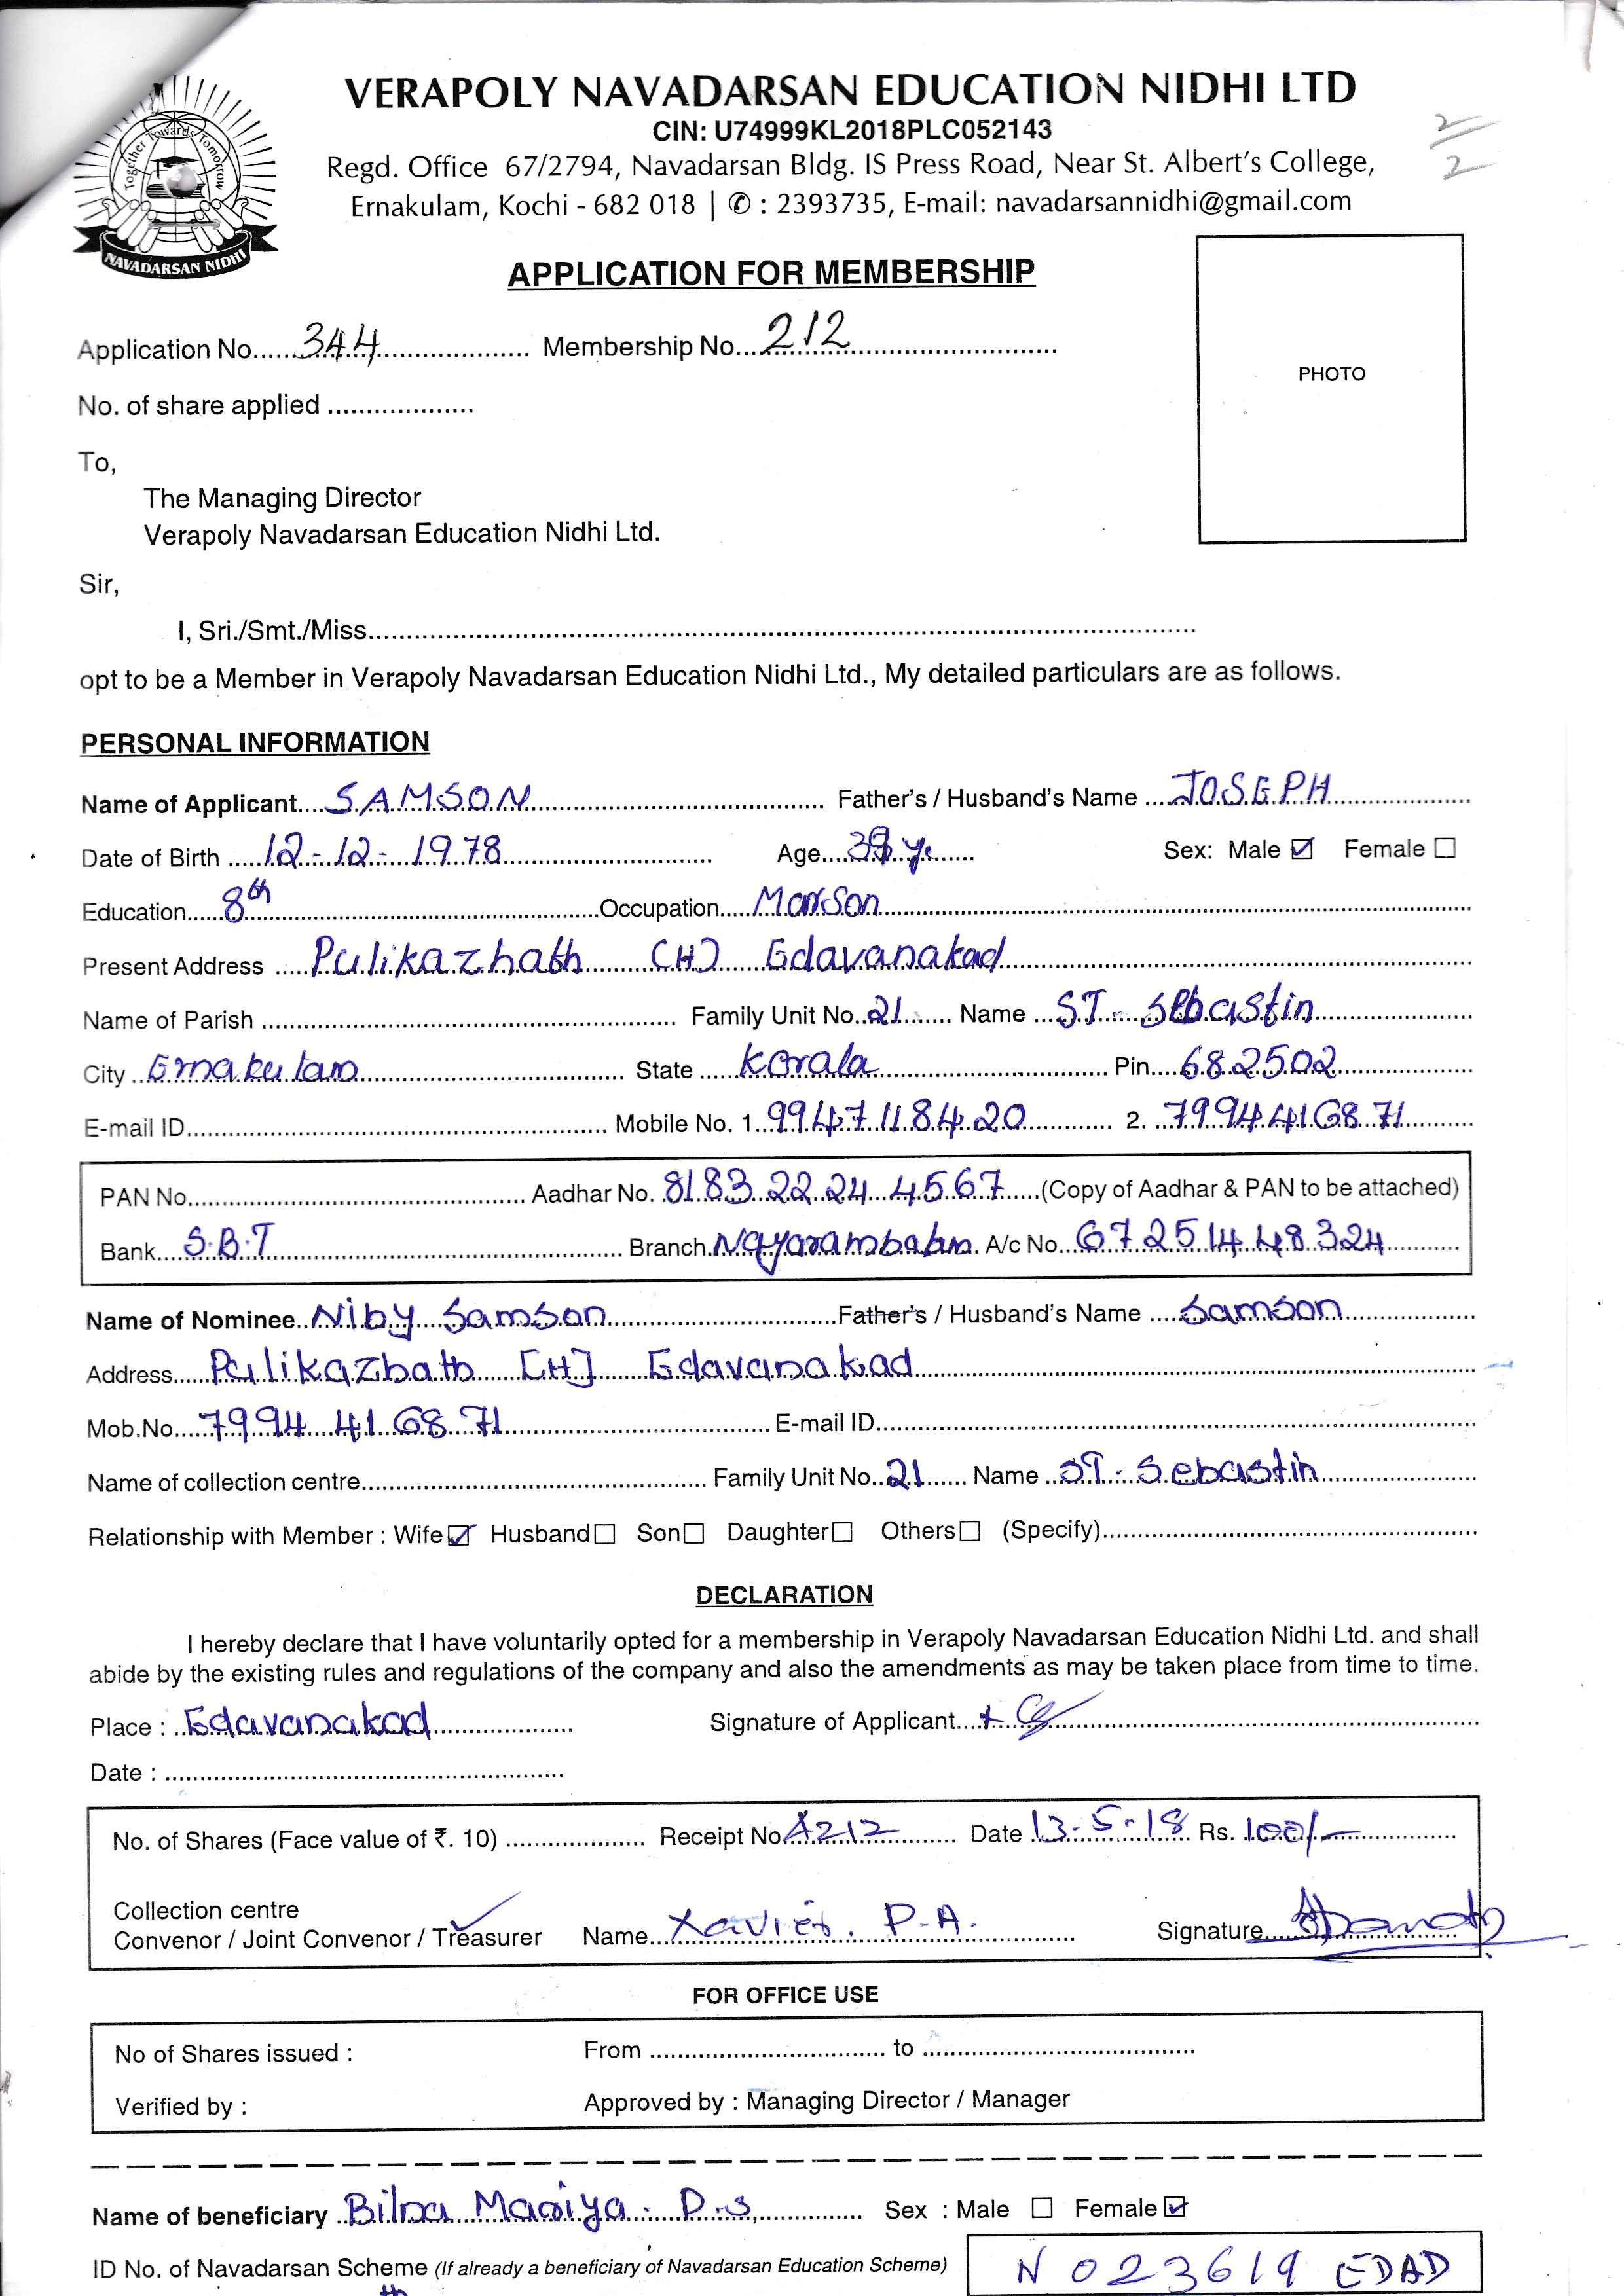 VERAPOLY NAVADARSAN EDUCATION NIDHI LTD
CIN: U74999KL2018PLC052143
Regd. Office 67/2794, Navadarsan Bldg. IS Press Road, Near St. Albert's College,
Ernakulam, Kochi - 682 018 | ✆ : 2393735, E-mail: navadarsannidhi@gmail.com
2/2
Together Towards Tomorrow
NAVADARSAN NIDHI
APPLICATION FOR MEMBERSHIP
Application No. 344 Membership No. 212
PHOTO
No. of share applied
To,
The Managing Director
Verapoly Navadarsan Education Nidhi Ltd.
Sir,
I, Sri./Smt./Miss
opt to be a Member in Verapoly Navadarsan Education Nidhi Ltd., My detailed particulars are as follows.
PERSONAL INFORMATION
Name of Applicant SAMSON Father's / Husband's Name JOSEPH
Date of Birth 12-12-1978 Age 39 y. Sex: Male ☑ Female ☐
Education 8th Occupation Marson
Present Address Pulikazhath (H) Edavanakad
Name of Parish Family Unit No. 21 Name ST. Sebastin
City Ernakulam State Kerala Pin 682502
E-mail ID Mobile No. 1. 9947118420 2. 7994416871
PAN No. Aadhar No. 8183 2224 4567 (Copy of Aadhar & PAN to be attached)
Bank S.B.T Branch A/c No. 67251448324
Name of Nominee Niby Samson Father's / Husband's Name Samson
Address Pulikazhath [H] Edavanakad
Mob.No. 7994 416871 E-mail ID
Name of collection centre Family Unit No. 21 Name ST. Sebastin
Relationship with Member : Wife ☑ Husband ☐ Son ☐ Daughter ☐ Others ☐ (Specify)
DECLARATION
I hereby declare that I have voluntarily opted for a membership in Verapoly Navadarsan Education Nidhi Ltd. and shall
abide by the existing rules and regulations of the company and also the amendments as may be taken place from time to time.
Place : Edavanakad Signature of Applicant
Date :
No. of Shares (Face value of ₹. 10) Receipt No. A212 Date 13-5-18 Rs. 100/-
Collection centre
Convenor / Joint Convenor / Treasurer Name Xavier. P.A. Signature
FOR OFFICE USE
No of Shares issued : From to
Verified by : Approved by : Managing Director / Manager
Name of beneficiary Sex : Male ☐ Female ☑
ID No. of Navadarsan Scheme (If already a beneficiary of Navadarsan Education Scheme) N 023619 EDAD